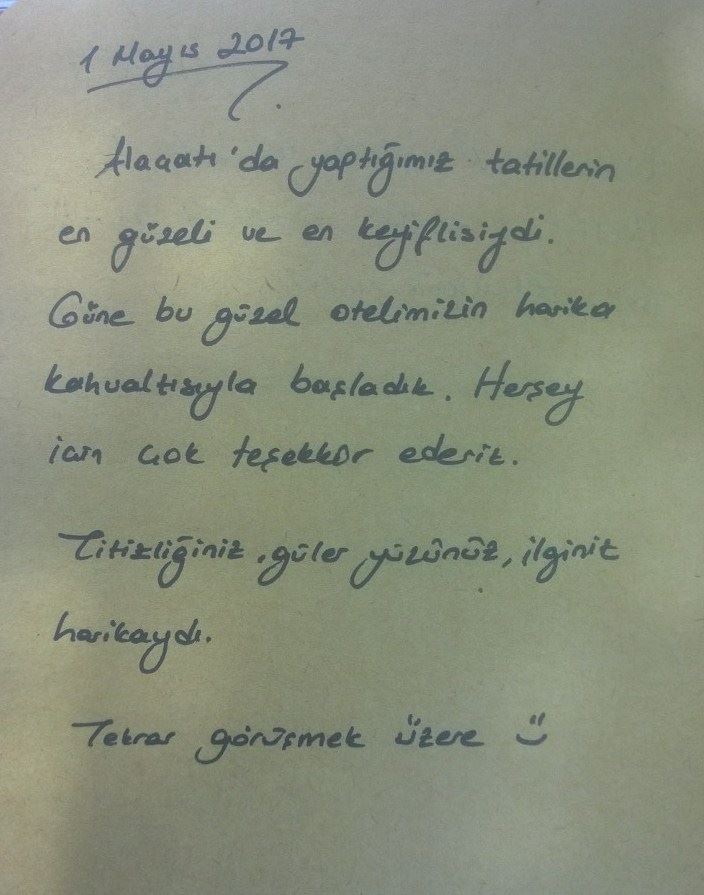 1 Mayıs 2017
Alaçatı'da yaptığımız tatillerin
en güzeli ve en keyiflisiydi.
Güne bu güzel otelimizin harika
kahvaltısıyla başladık. Herşey
için çok teşekkür ederiz.
Titizliğiniz, güler yüzünüz, ilginiz
harikaydı.
Tekrar görüşmek üzere